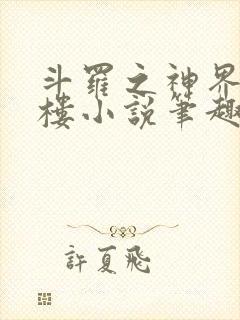 斗羅之神界
樓小說筆趣
許夏飛